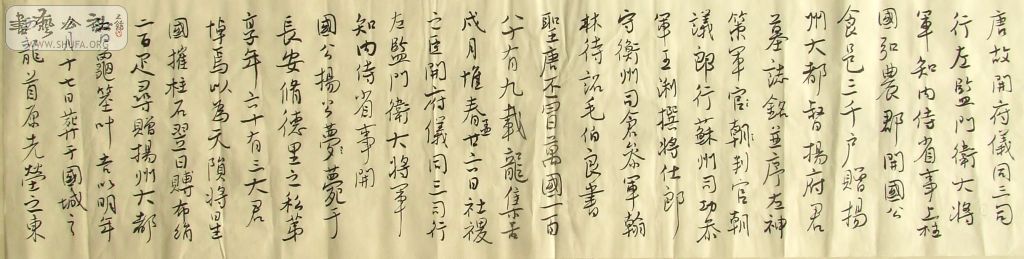 唐故開府儀同三司
行左監門衛大將
軍知內侍省事上柱
國弘農郡開國公
食邑三千戶贈揚
州大都督揚府君
墓誌銘並序左神
策軍宦判官朝
議郎行蘇州司功參
軍王㴋撰將仕郎
守衡州司倉參軍翰
林待詔毛伯良書
聖唐不冒萬國一百
八十有九載龍集
戌月惟孟春廿六日社稷
之臣開府儀同三司行
左監門衛大將軍
知內侍省事開
國公揚公夢薨于
長安脩德里之私第
享年六十有三大君
悼焉以為天隕將星
國摧柱石翌日賻布絹
二百疋尋贈揚州大都
督龜筮叶吉以明年
月十七日葬于國城之
龍首原先塋之東
書藝公社
WWW.SHUFA.ORG